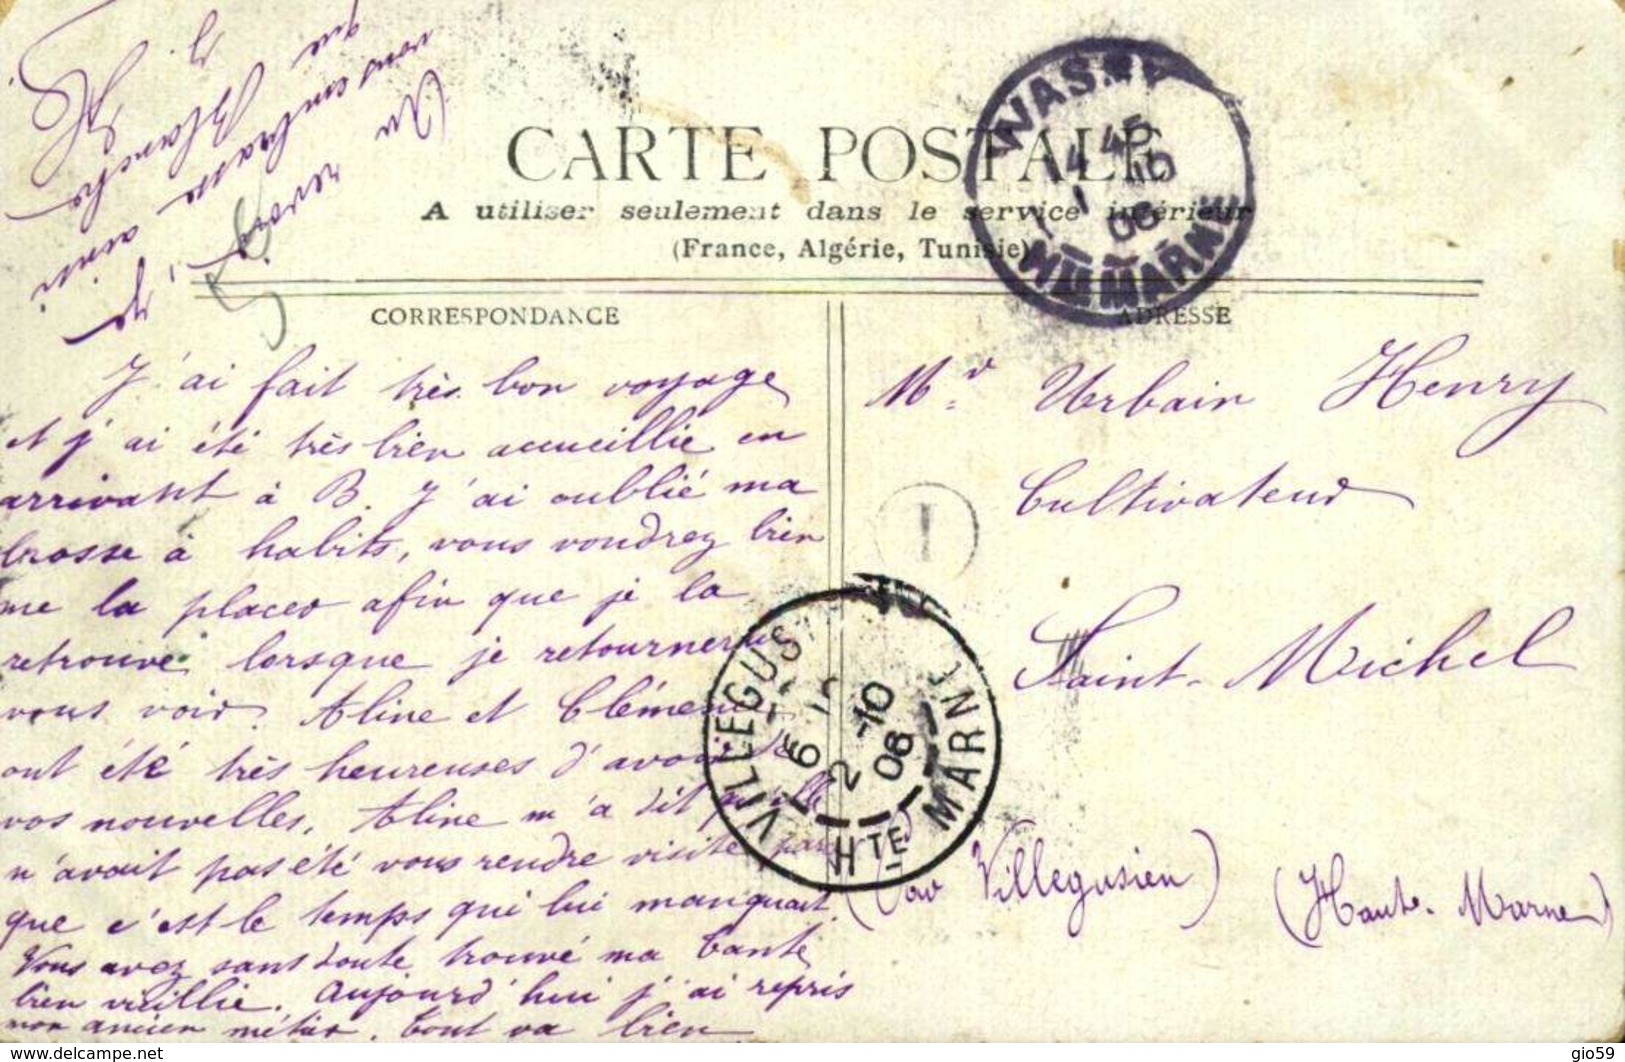 CARTE POSTALE
A utiliser seulement dans le service intérieur
(France, Algérie, Tunisie)
CORRESPONDANCE
J'ai fait très bon voyage
et j'ai été très bien accueillie en
arrivant à B. J'ai oublié ma
brosse à habits, vous voudrez bien
me la placer afin que je la
retrouve lorsque je retournerai
vous voir. Aline et Clémence
ont été très heureuses d'avoir de
vos nouvelles. Aline m'a dit qu'elle
n'avait pas été vous rendre visite parce
que c'est le temps qui lui manquait.
Vous avez sans doute trouvé ma tante
bien vieillie. Aujourd'hui j'ai repris
mon ancien métier. Tout va bien
Au revoir, je
vous embrasse ainsi
que Blanche
H
ADRESSE
Mr Urbain Henry
Cultivateur
Saint-Michel
(par Villegusien)
(Haute-Marne)
WASSY
1 10
06
Hte MARNE
1
VILLEGUSIEN
6
2 -10
06
Hte MARNE
www.delcampe.net
gio59